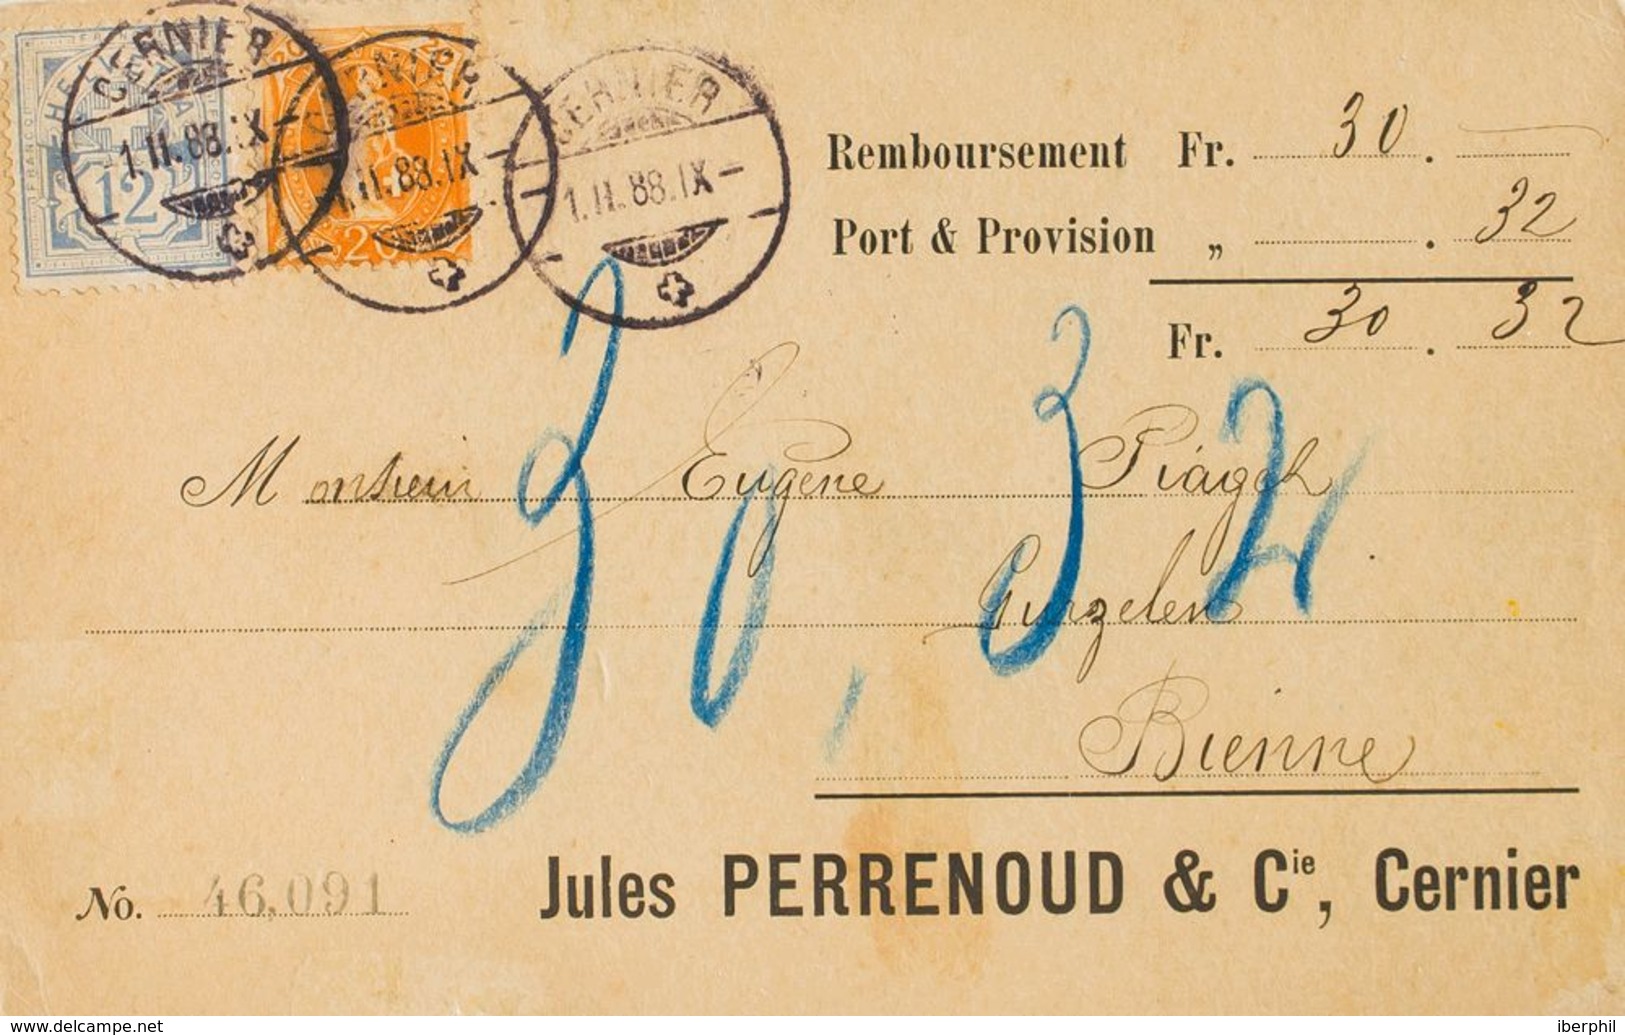 HELVETIA
FRANCO
12
20 20
20
CERNIER
1.II.88.IX-
CERNIER
1.II.88.IX-
CERNIER
1.II.88.IX-
Remboursement Fr. 30. —
Port & Provision „ . 32
Fr. 30 . 32
30,32
Monsieur Eugène Piaget
Gurzelen
Bienne
No. 46,091
Jules PERRENOUD & Cie, Cernier
iberphil